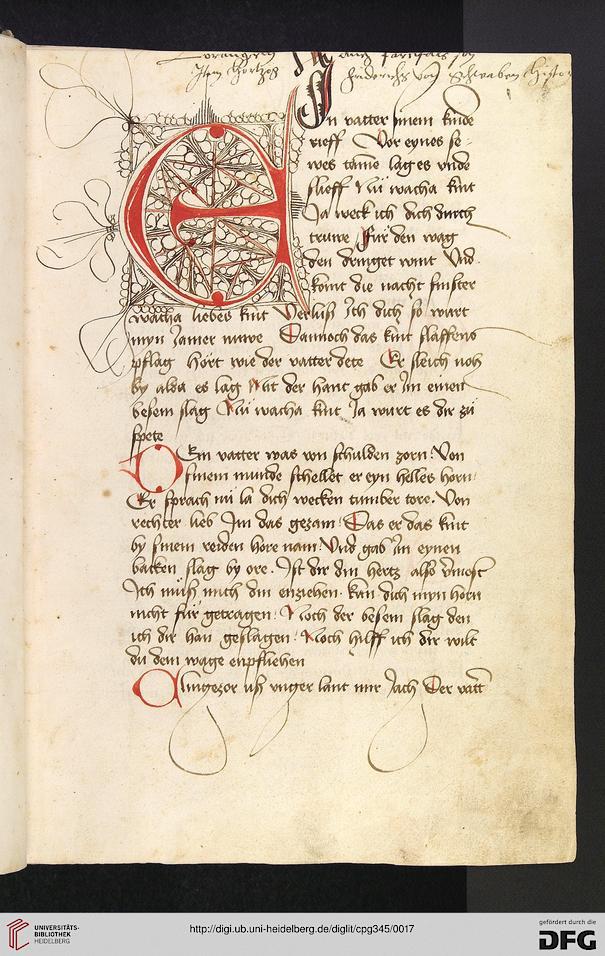 Item hertzog friderichs von Schwaben histo
EIn vatter sinem kinde
rieff Vor eynes se-
wes tame lag es vnde
slieff Nu wacha kint
Ja weck ich dich durch
truwe Fur den wag
den dringet wint Vnd
komt die nacht finster
wacha liebes kint Verluß Ich dich so wart
myn Jamer nuwe Dannoch das kint slaffens
pflag Hört wie der vatter dete Er sleich noh
by alda es lag Mit der hant gab er Im einen
besem slag Nu wacha kint Ja wurt es dir zu
spete
Dem vatter was von schulden zorn Von
sinem munde schellet er eyn helles horn
Er sprach nu la dich wecken tummer tore Von
rechter lieb Im das gezam Das er das kint
by sinem reiden hore nam Vnd gab Im eynen
backen slag by ore Ist dir din hertz also vmost
Ich muß mich din enziehen kan dich myn horn
nicht fur getragen Noch der besem slag den
ich dir han geslagen Noch hilff ich dir wilt
du dem wage enpfliehen
Clingezor uß vnger lant mir Jach Der vatter
UNIVERSITÄTS-
BIBLIOTHEK
HEIDELBERG
http://digi.ub.uni-heidelberg.de/diglit/cpg345/0017
gefördert durch die
DFG